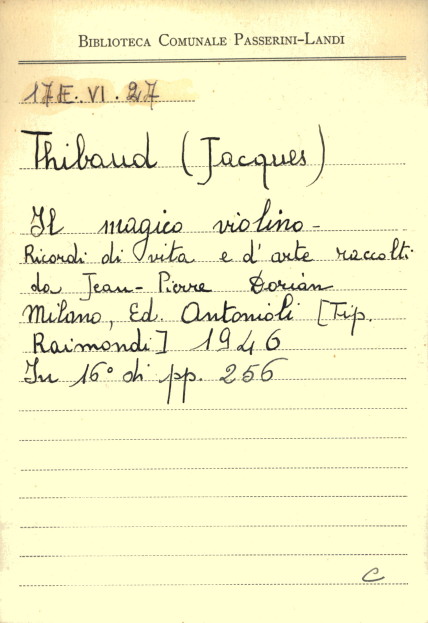 BIBLIOTECA COMUNALE PASSERINI-LANDI
17E.VI.27
Thibaud (Jacques)
Il magico violino -
Ricordi di vita e d'arte raccolti
da Jean-Pierre Dorian
Milano, Ed. Antonioli [Tip.
Raimondi] 1946
In 16° di pp. 256
C